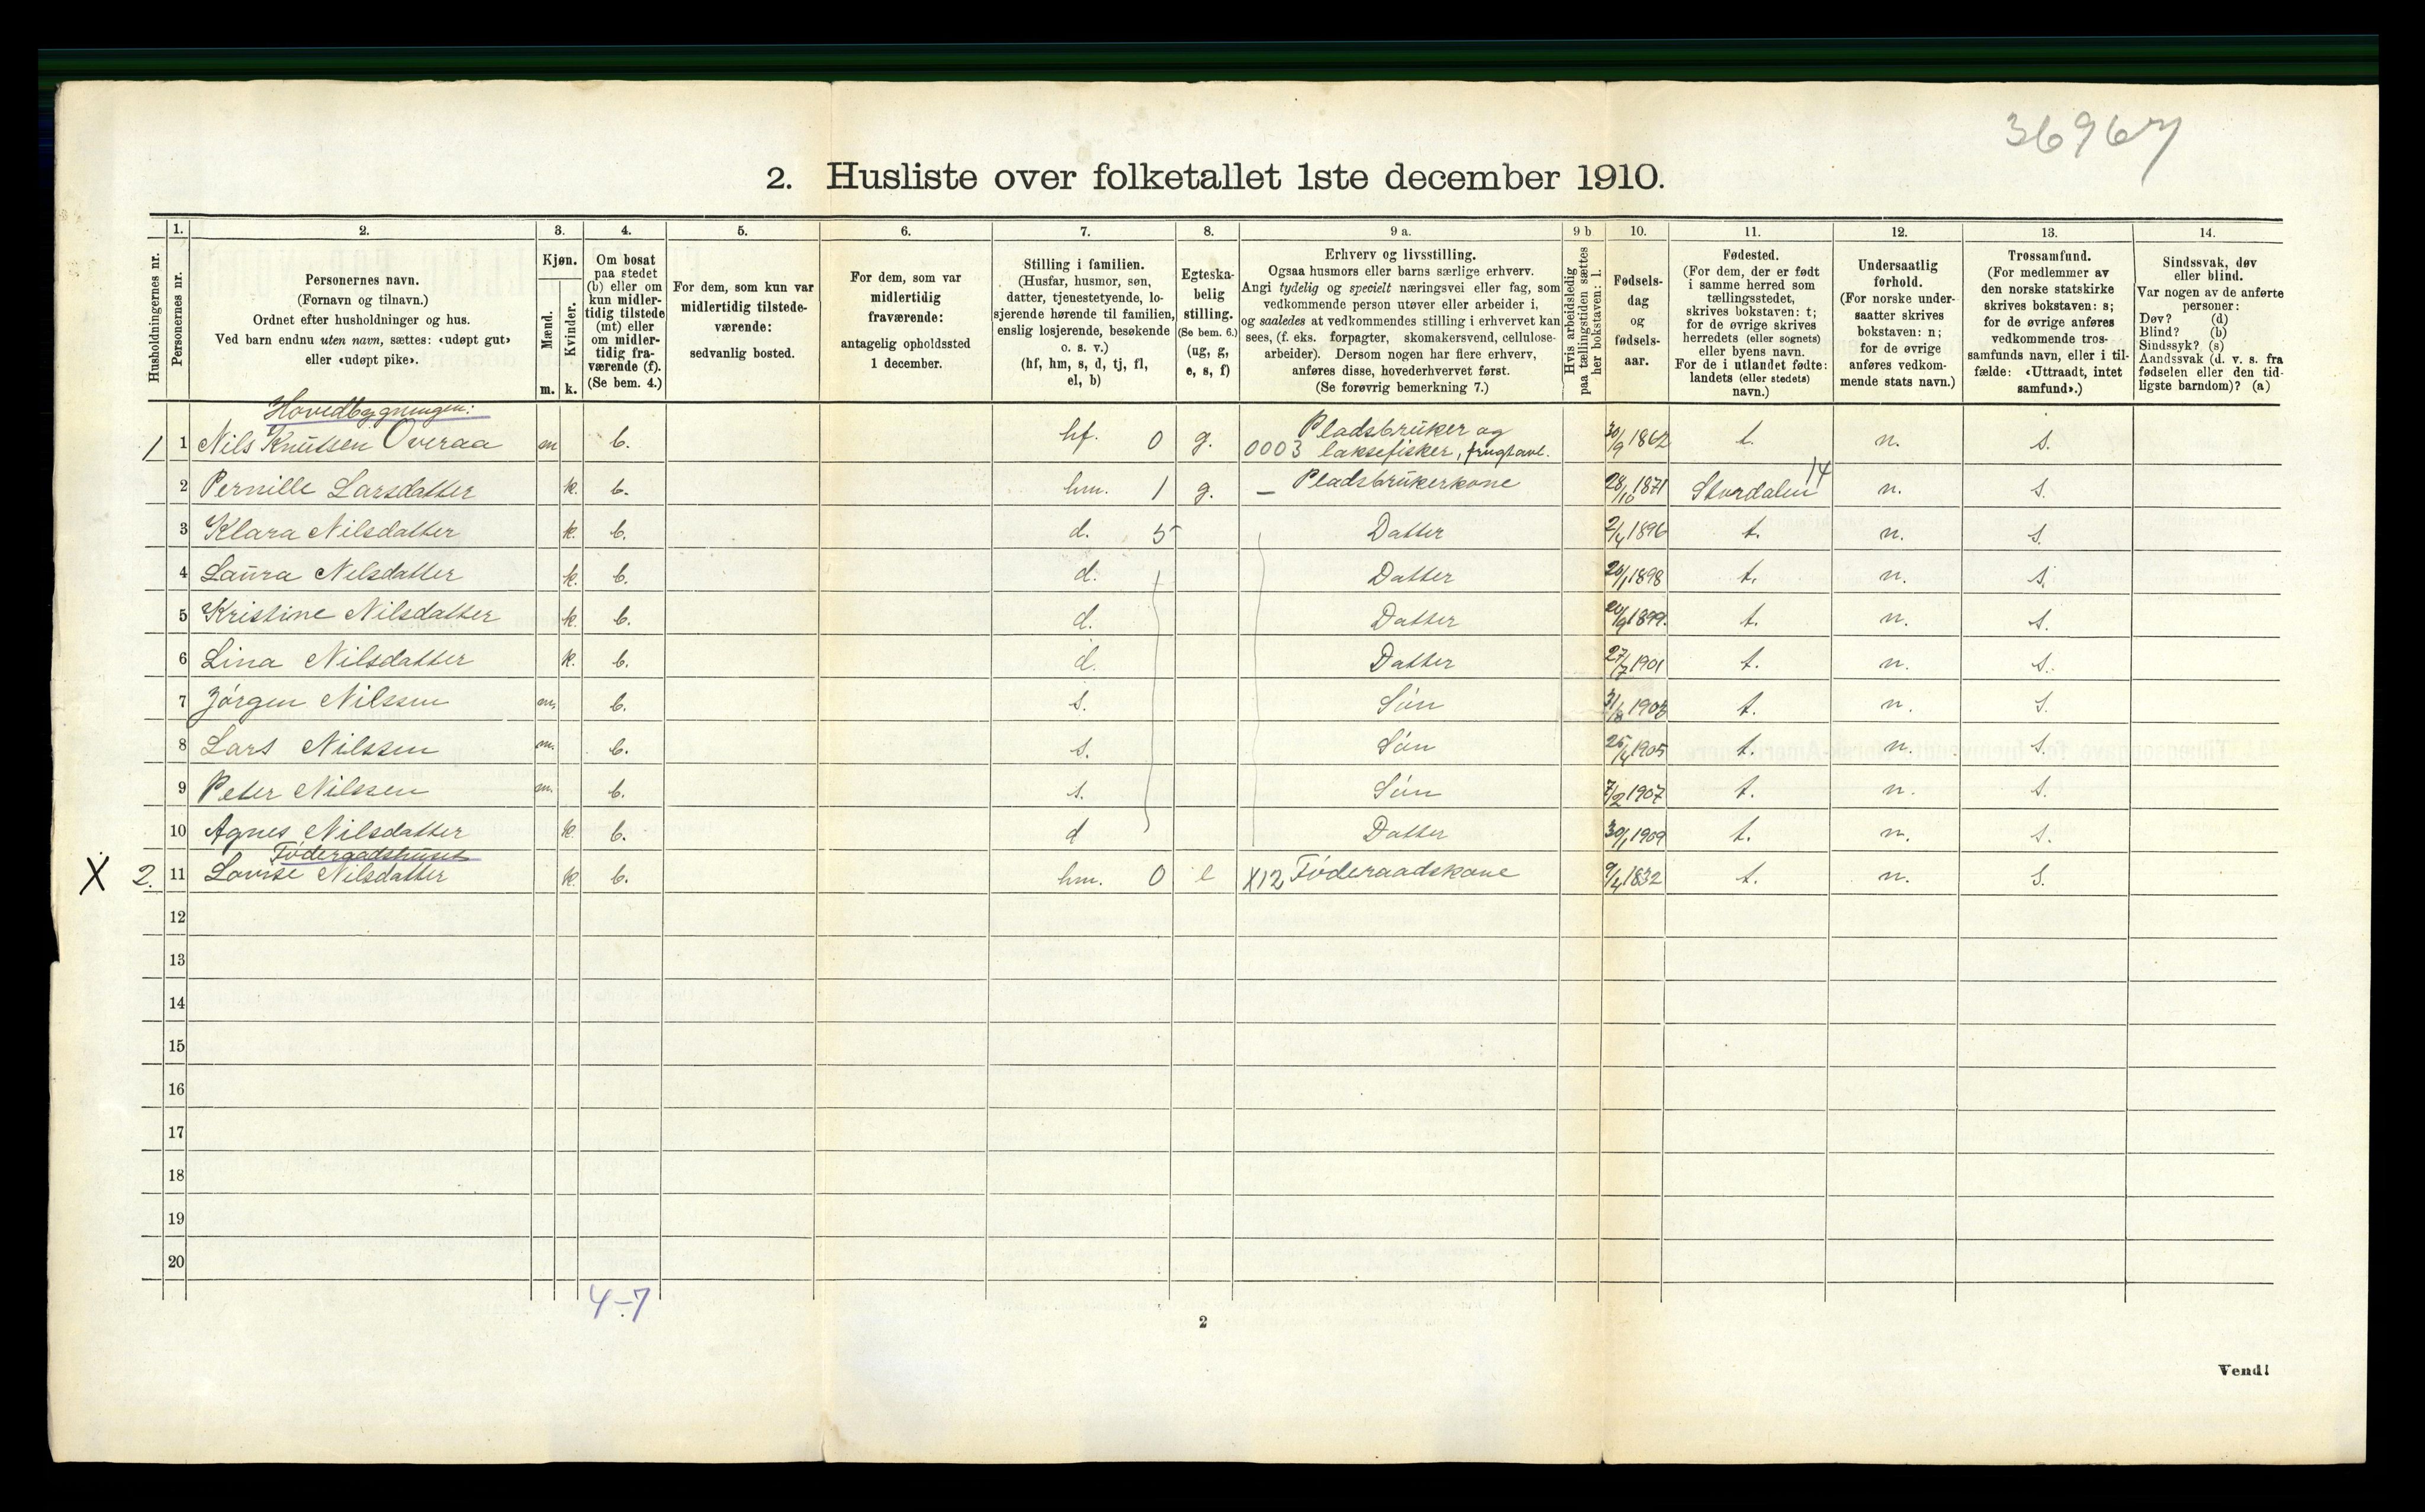 36967
2. Husliste over folketallet 1ste december 1910.
Husholdningernes nr.
1. Personernes nr.
2. Personernes navn. (Fornavn og tilnavn.) Ordnet efter husholdninger og hus. Ved barn endnu uten navn, sættes: «udøpt gut» eller «udøpt pike».
3. Kjøn. Mænd. m. Kvinder. k.
4. Om bosat paa stedet (b) eller om kun midler-tidig tilstede (mt) eller om midler-tidig fra-værende (f). (Se bem. 4.)
5. For dem, som kun var midlertidig tilstede-værende: sedvanlig bosted.
6. For dem, som var midlertidig fraværende: antagelig opholdssted 1 december.
7. Stilling i familien. (Husfar, husmor, søn, datter, tjenestetyende, lo-sjerende hørende til familien, enslig losjerende, besøkende o. s. v.) (hf, hm, s, d, tj, fl, el, b)
8. Egteska-belig stilling. (Se bem. 6.) (ug, g, e, s, f)
9 a. Erhverv og livsstilling. Ogsaa husmors eller barns særlige erhverv. Angi tydelig og specielt næringsvei eller fag, som vedkommende person utøver eller arbeider i, og saaledes at vedkommendes stilling i erhvervet kan sees, (f. eks. forpagter, skomakersvend, cellulose-arbeider). Dersom nogen har flere erhverv, anføres disse, hovederhvervet først. (Se forøvrig bemerkning 7.)
9 b Hvis arbeidsledig paa tællingstiden sættes her bokstaven: l.
10. Fødsels-dag og fødsels-aar.
11. Fødested. (For dem, der er født i samme herred som tællingsstedet, skrives bokstaven: t; for de øvrige skrives herredets (eller sognets) eller byens navn. For de i utlandet fødte: landets (eller stedets) navn.)
12. Undersaatlig forhold. (For norske under-saatter skrives bokstaven: n; for de øvrige anføres vedkom-mende stats navn.)
13. Trossamfund. (For medlemmer av den norske statskirke skrives bokstaven: s; for de øvrige anføres vedkommende tros-samfunds navn, eller i til-fælde: «Uttraadt, intet samfund».)
14. Sindssvak, døv eller blind. Var nogen av de anførte personer: Døv? (d) Blind? (b) Sindssyk? (s) Aandssvak (d. v. s. fra fødselen eller den tid-ligste barndom)? (a)
Hovedbygningen:
1 1 Nils Knutsen Overaa m b. hf. 0 g. Pladsbruker og 0003 laksefisker, frugtavl. 30/9 1862 t. n. s.
2 Pernille Larsdatter k. b. hm. 1 g. – Pladsbrukerkone 28/10 1871 Stordalen 14 n. s.
3 Klara Nilsdatter k. b. d. 5 Datter 2/4 1896 t. n. s.
4 Laura Nilsdatter k. b. d. Datter 20/1 1898 t. n. s.
5 Kristine Nilsdatter k. b. d. Datter 20/9 1899. t. n. s.
6 Lina Nilsdatter k. b. d. Datter 27/7 1901 t. n. s.
7 Jørgen Nilssen m. b. s. Søn 31/8 1903 t. n. s.
8 Lars Nilssen m. b. s. Søn 25/4 1905 t. n. s.
9 Peter Nilssen m. b. s. Søn 7/2 1907 t. n. s.
10 Agnes Nilsdatter k. b. d Datter 30/1 1909 t. n. s.
Føderaadshuset
X 2. 11 Lovise Nilsdatter k. b. hm. 0 e X12 Føderaadskone 9/4 1832 t. n. s.
12
13
14
15
16
17
18
19
20
4-7
2
Vend!